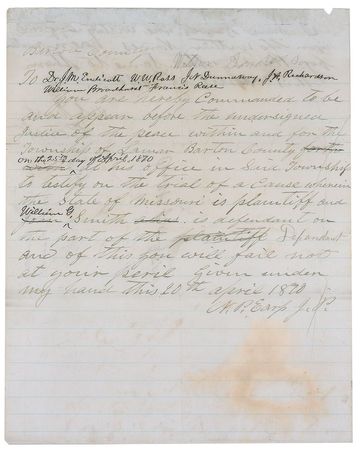 Barton County
To Dr. J. M. Endicott W. W. Ross J. N. Dunnaway, J. A. Richardson
William Broadhurst Francis Rase
You are hereby Commanded to be
and appear before the undersigned
Justice of the peace within and for the
Township of Lamar Barton County
on the 25th day of April 1870
at his office in Said Township
to testify on the trial of a Cause wherein
the State of Missouri is plaintiff and
William G.
Smith is defendant on
the part of the plaintiff Defendant
and of this you will fail not
at your peril Given under
my hand this 20th april 1870
N. P. Earp J. P.